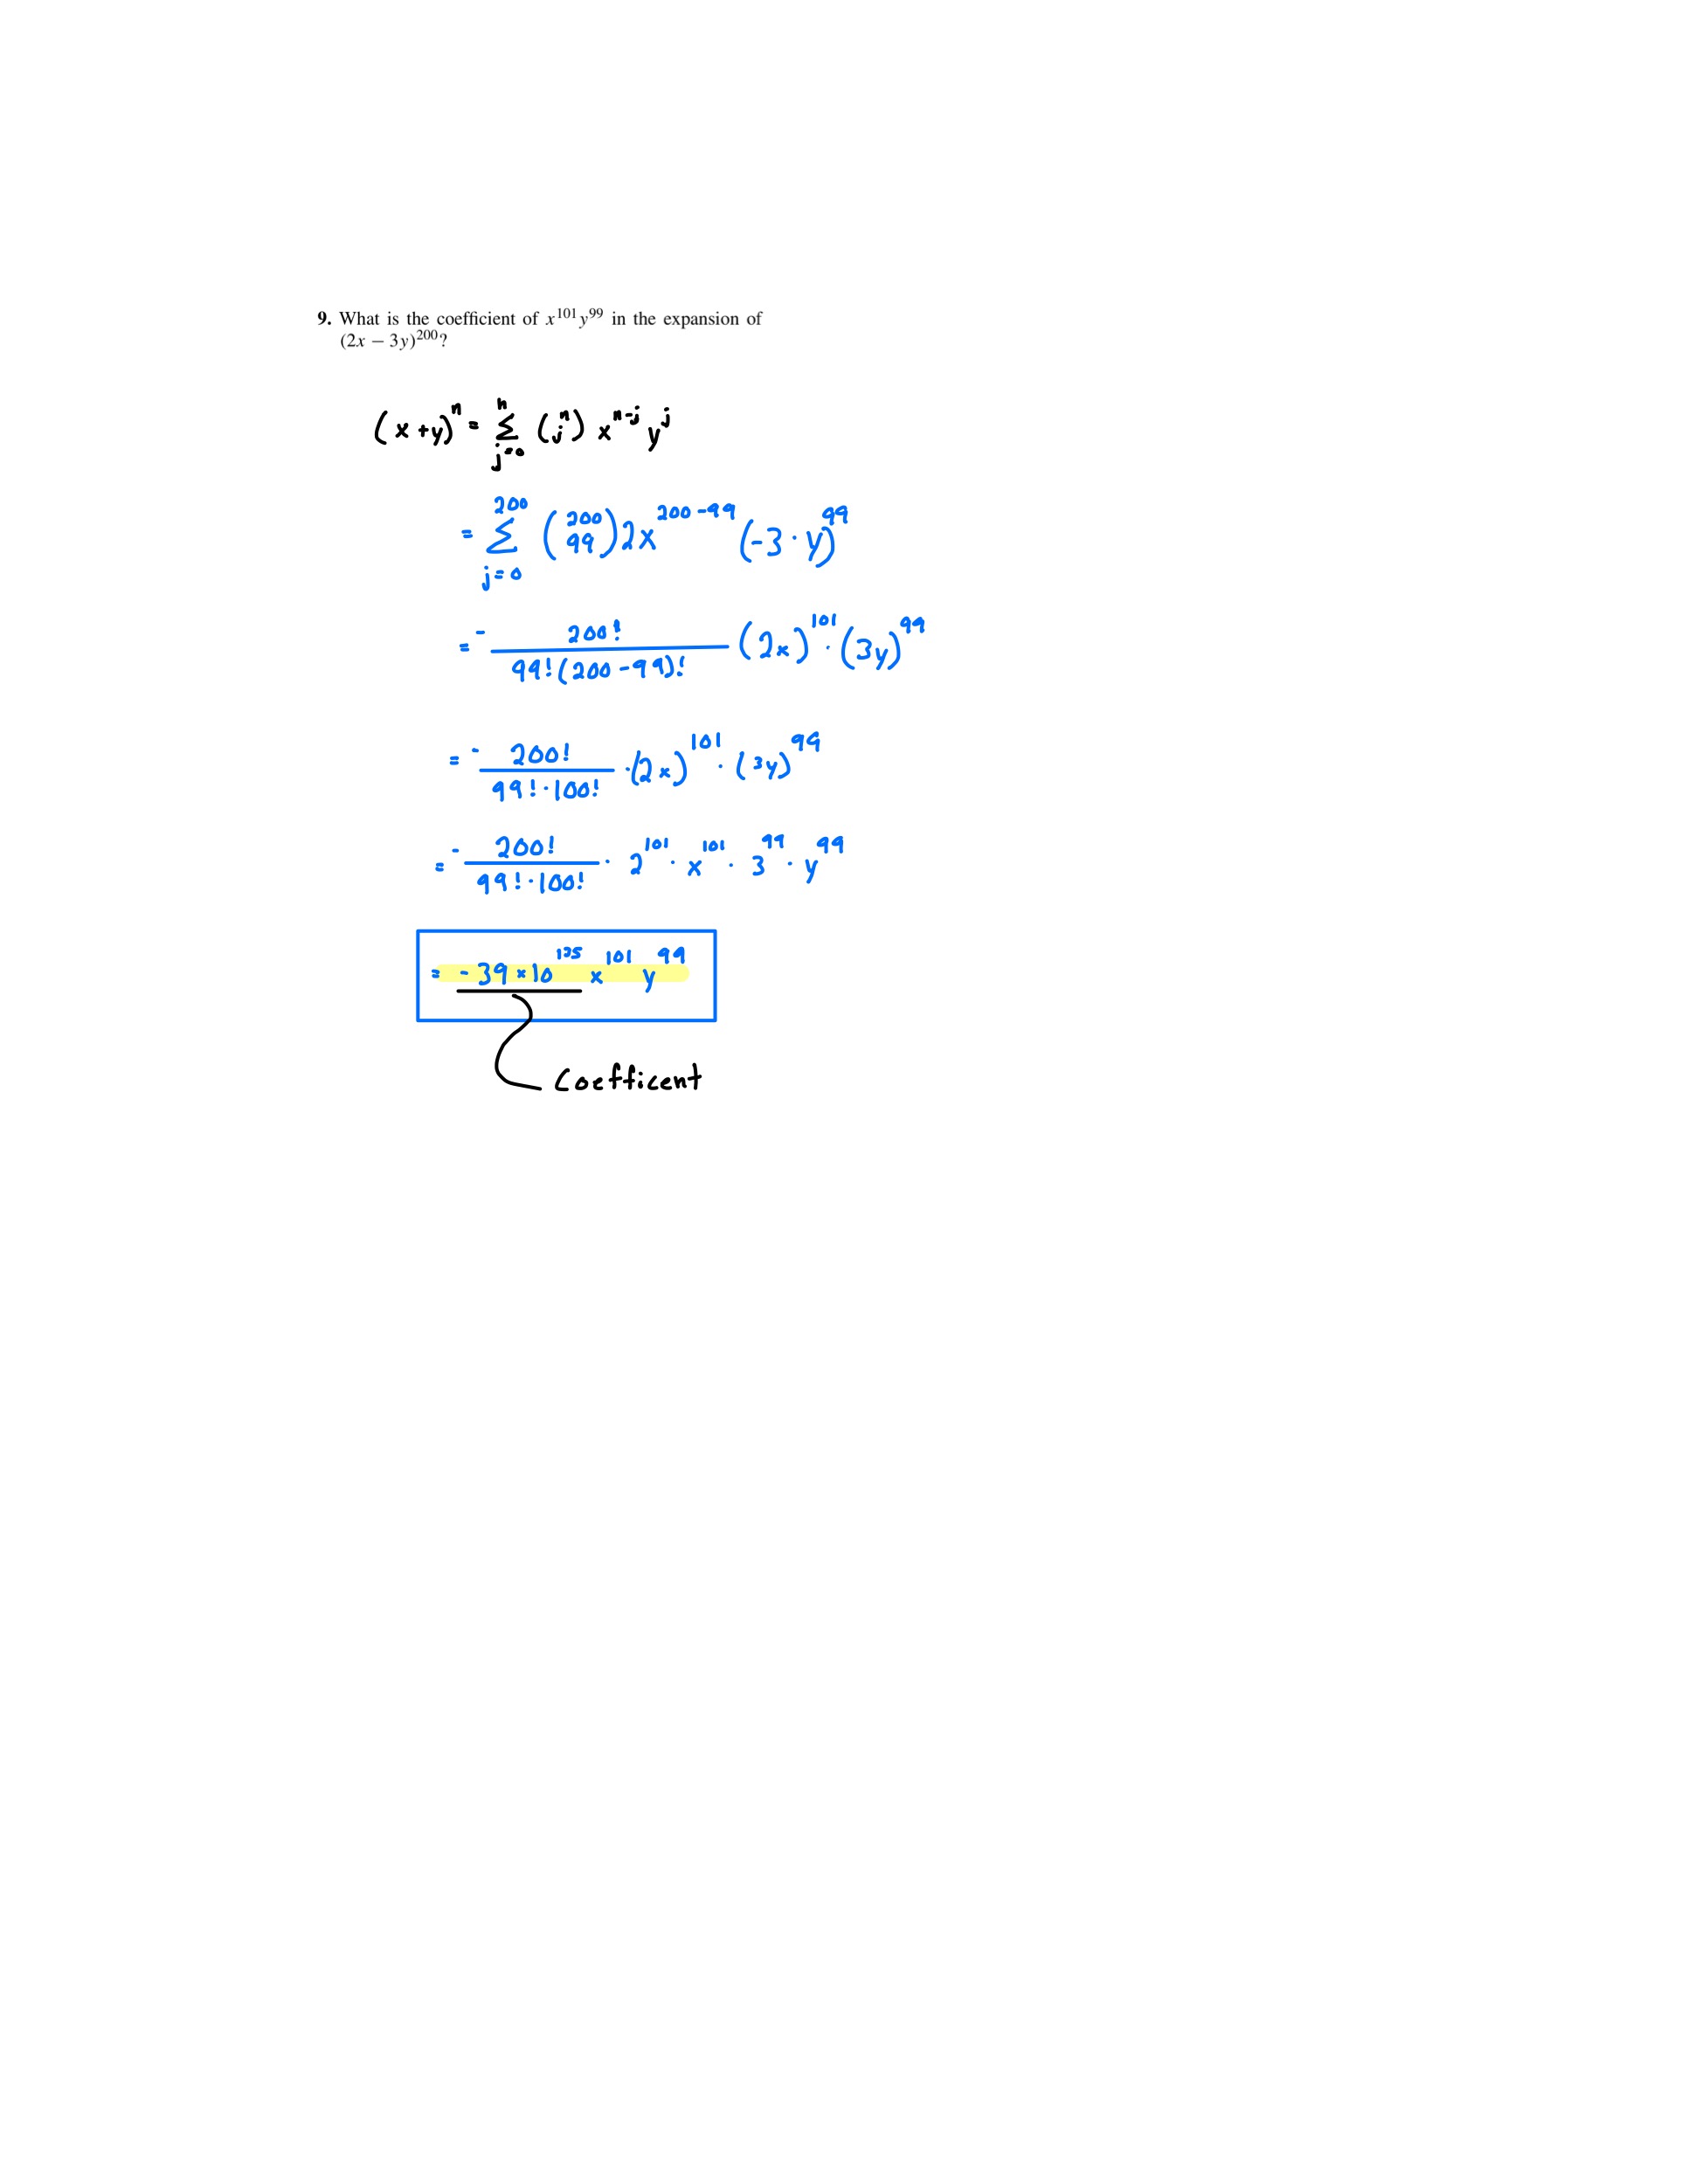 9. What is the coefficient of x^101 y^99 in the expansion of
(2x − 3y)^200?
(x+y)^n = Σ_{j=0}^{n} (n j) x^{n-j} y^j
= Σ_{j=0}^{200} (200 99) 2x^{200-99} (-3·y)^99
= - 200! / 99!(200-99)! (2x)^101 · (3y)^99
= - 200! / 99!·100! ·(2x)^101 · (3y)^99
= - 200! / 99!·100! · 2^101 · x^101 · 3^99 · y^99
= -39×10^135 x^101 y^99
Coefficent